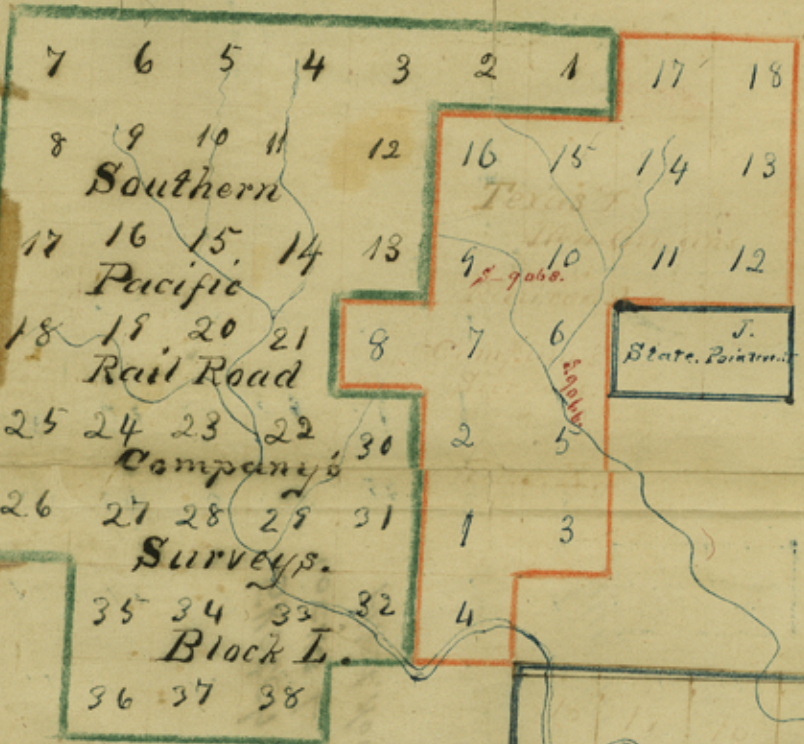 7 6 5 4 3 2 1 17 18
8 9 10 11 12 16 15 14 13
Southern
17 16 15 14 13 9 10 11 12
S-9068.
Pacific
18 19 20 21 8 7 6
J.
State.
Rail Road
25 24 23 22 30 2 5
Company's
26 27 28 29 31 1 3
Surveys.
35 34 33 32 4
Block L.
36 37 38